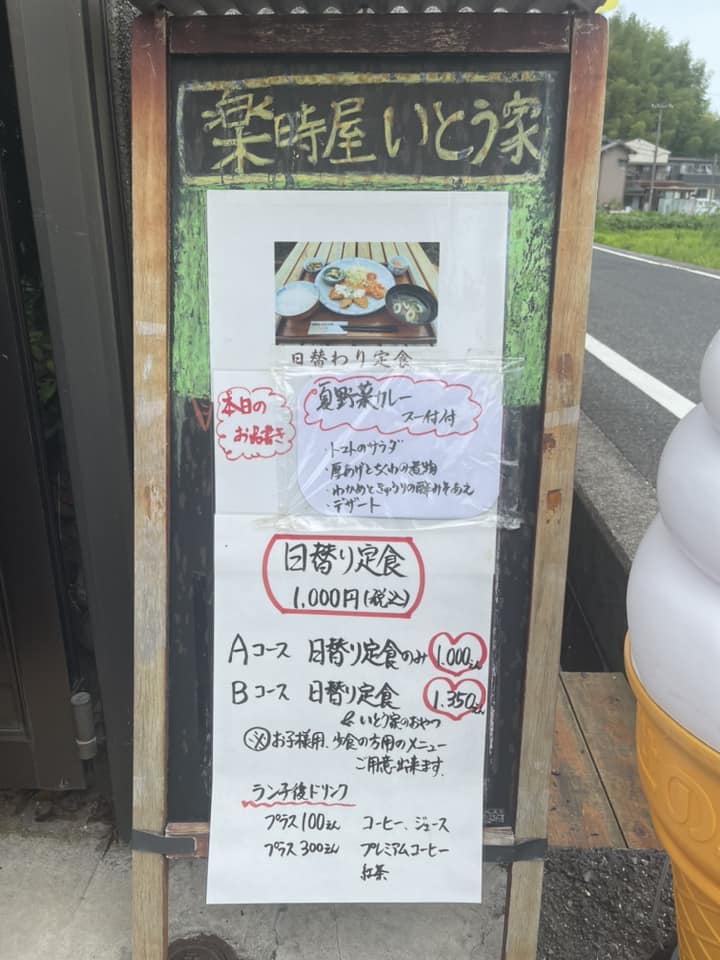 楽時屋 いとう家
日替わり定食
本日の
お品書き
夏野菜カレー
スープ付
・トマトのサラダ
・厚あげとちくわの煮物
・わかめときゅうりの酢みそあえ
・デザート
日替り定食
1,000円(税込)
Aコース 日替り定食のみ 1.000えん
Bコース 日替り定食 1.350えん
いとう家のおやつ
㋱お子様用、少食の方用のメニュー
ご用意出来ます.
ランチ後ドリンク
プラス100えん コーヒー、ジュース
プラス300えん プレミアムコーヒー
紅茶